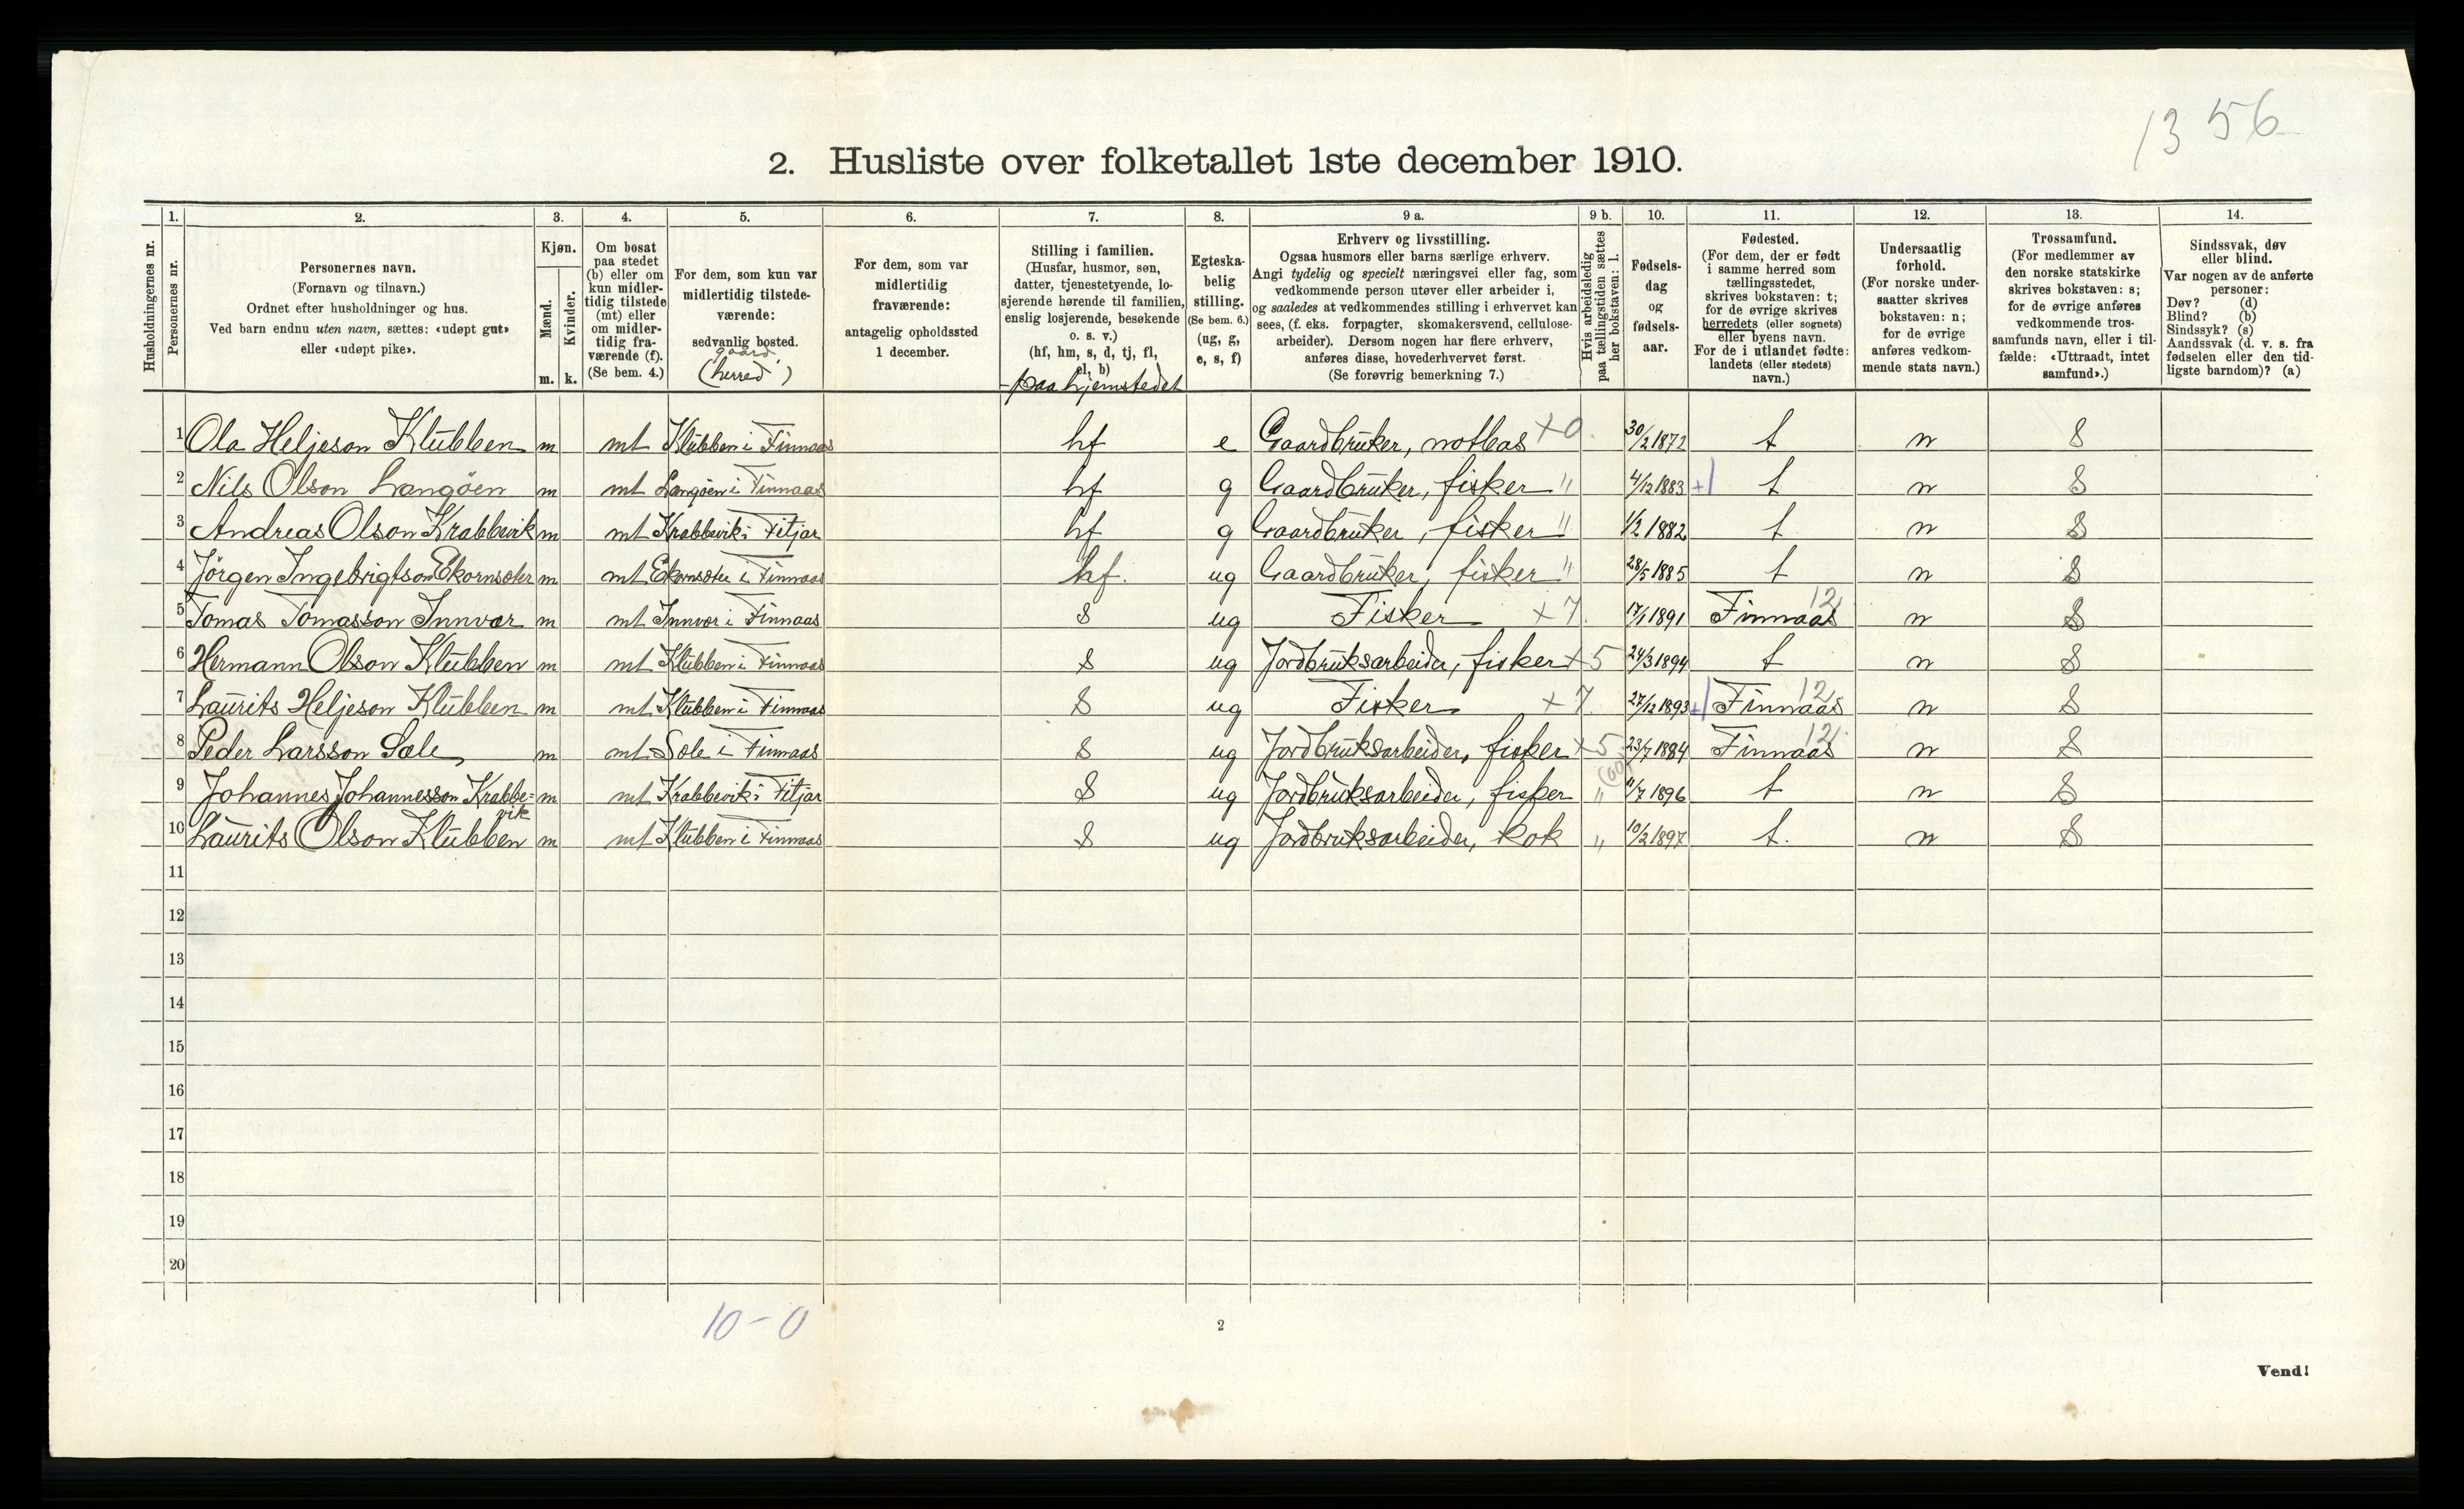 1356
2. Husliste over folketallet 1ste december 1910.
Husholdningernes nr.
1. 2. 3. 4. 5. 6. 7. 8. 9 a. 9 b. 10. 11. 12. 13. 14.
Personernes nr.
Personernes navn.
(Fornavn og tilnavn.)
Ordnet efter husholdninger og hus.
Ved barn endnu uten navn, sættes: «udøpt gut»
eller «udøpt pike».
Kjøn.
Mænd.
Kvinder.
m. k.
Om bosat
paa stedet
(b) eller om
kun midler-
tidig tilstede
(mt) eller
om midler-
tidig fra-
værende (f).
(Se bem. 4.)
For dem, som kun var
midlertidig tilstede-
værende:
sedvanlig bosted.
gaard,
(herred)
For dem, som var
midlertidig
fraværende:
antagelig opholdssted
1 december.
Stilling i familien.
(Husfar, husmor, søn,
datter, tjenestetyende, lo-
sjerende hørende til familien,
enslig losjerende, besøkende
o. s. v.)
(hf, hm, s, d, tj, fl,
el, b)
- paa hjemstedet
Egteska-
belig
stilling.
(Se bem. 6.)
(ug, g,
e, s, f)
Erhverv og livsstilling.
Ogsaa husmors eller barns særlige erhverv.
Angi tydelig og specielt næringsvei eller fag, som
vedkommende person utøver eller arbeider i,
og saaledes at vedkommendes stilling i erhvervet kan
sees, (f. eks. forpagter, skomakersvend, cellulose-
arbeider). Dersom nogen har flere erhverv,
anføres disse, hovederhvervet først.
(Se forøvrig bemerkning 7.)
Hvis arbeidsledig
paa tællingstiden sættes
her bokstaven: l.
Fødsels-
dag
og
fødsels-
aar.
Fødested.
(For dem, der er født
i samme herred som
tællingsstedet,
skrives bokstaven: t;
for de øvrige skrives
herredets (eller sognets)
eller byens navn.
For de i utlandet fødte:
landets (eller stedets)
navn.)
Undersaatlig
forhold.
(For norske under-
saatter skrives
bokstaven: n;
for de øvrige
anføres vedkom-
mende stats navn.)
Trossamfund.
(For medlemmer av
den norske statskirke
skrives bokstaven: s;
for de øvrige anføres
vedkommende tros-
samfunds navn, eller i til-
fælde: «Uttraadt, intet
samfund».)
Sindssvak, døv
eller blind.
Var nogen av de anførte
personer:
Døv? (d)
Blind? (b)
Sindssyk? (s)
Aandssvak (d. v. s. fra
fødselen eller den tid-
ligste barndom)? (a)
1 Ola Heljeson Klubben m mt Klubben i Finnaas hf e Gaardbruker, notbas x0. 30/2 1872 t n S
2 Nils Olson Langöen m mt Langöen i Finnaas hf g Gaardbruker, fisker " 4/12 1883 +1 t n S
3 Andreas Olson Krabbevik m mt Krabbevik i Fitjar hf g Gaardbruker, fisker " 1/2 1882 t n S
4 Jörgen Ingebrigtson Ekornsæter m mt Ekornsæter i Finnaas hf. ug Gaardbruker, fisker " 28/5 1885 t n S
5 Tomas Tomasson Innvær m mt Innvær i Finnaas S ug Fisker x7. 17/1 1891 Finnaas 12 n S
6 Hermann Olson Klubben m mt Klubben i Finnaas S ug Jordbruksarbeider, fisker x5 24/3 1894 t n S
7 Laurits Heljeson Klubben m mt Klubben i Finnaas S ug Fisker x7. 27/12 1893 +1 Finnaas 12 n S
8 Peder Larsson Sæle m mt Sæle i Finnaas S ug Jordbruksarbeider, fisker x5 23/7 1884 Finnaas 12 n S
9 Johannes Johannesson Krabbe= m mt Krabbevik i Fitjar S ug Jordbruksarbeider, fisker " 11/7 1896 t n S
vik
10 Laurits Olson Klubben m mt Klubben i Finnaas S ug Jordbruksarbeider, kok " 10/2 1897 t. n S
11
12
13
14
15
16
17
18
19
20
10-0
2
Vend!